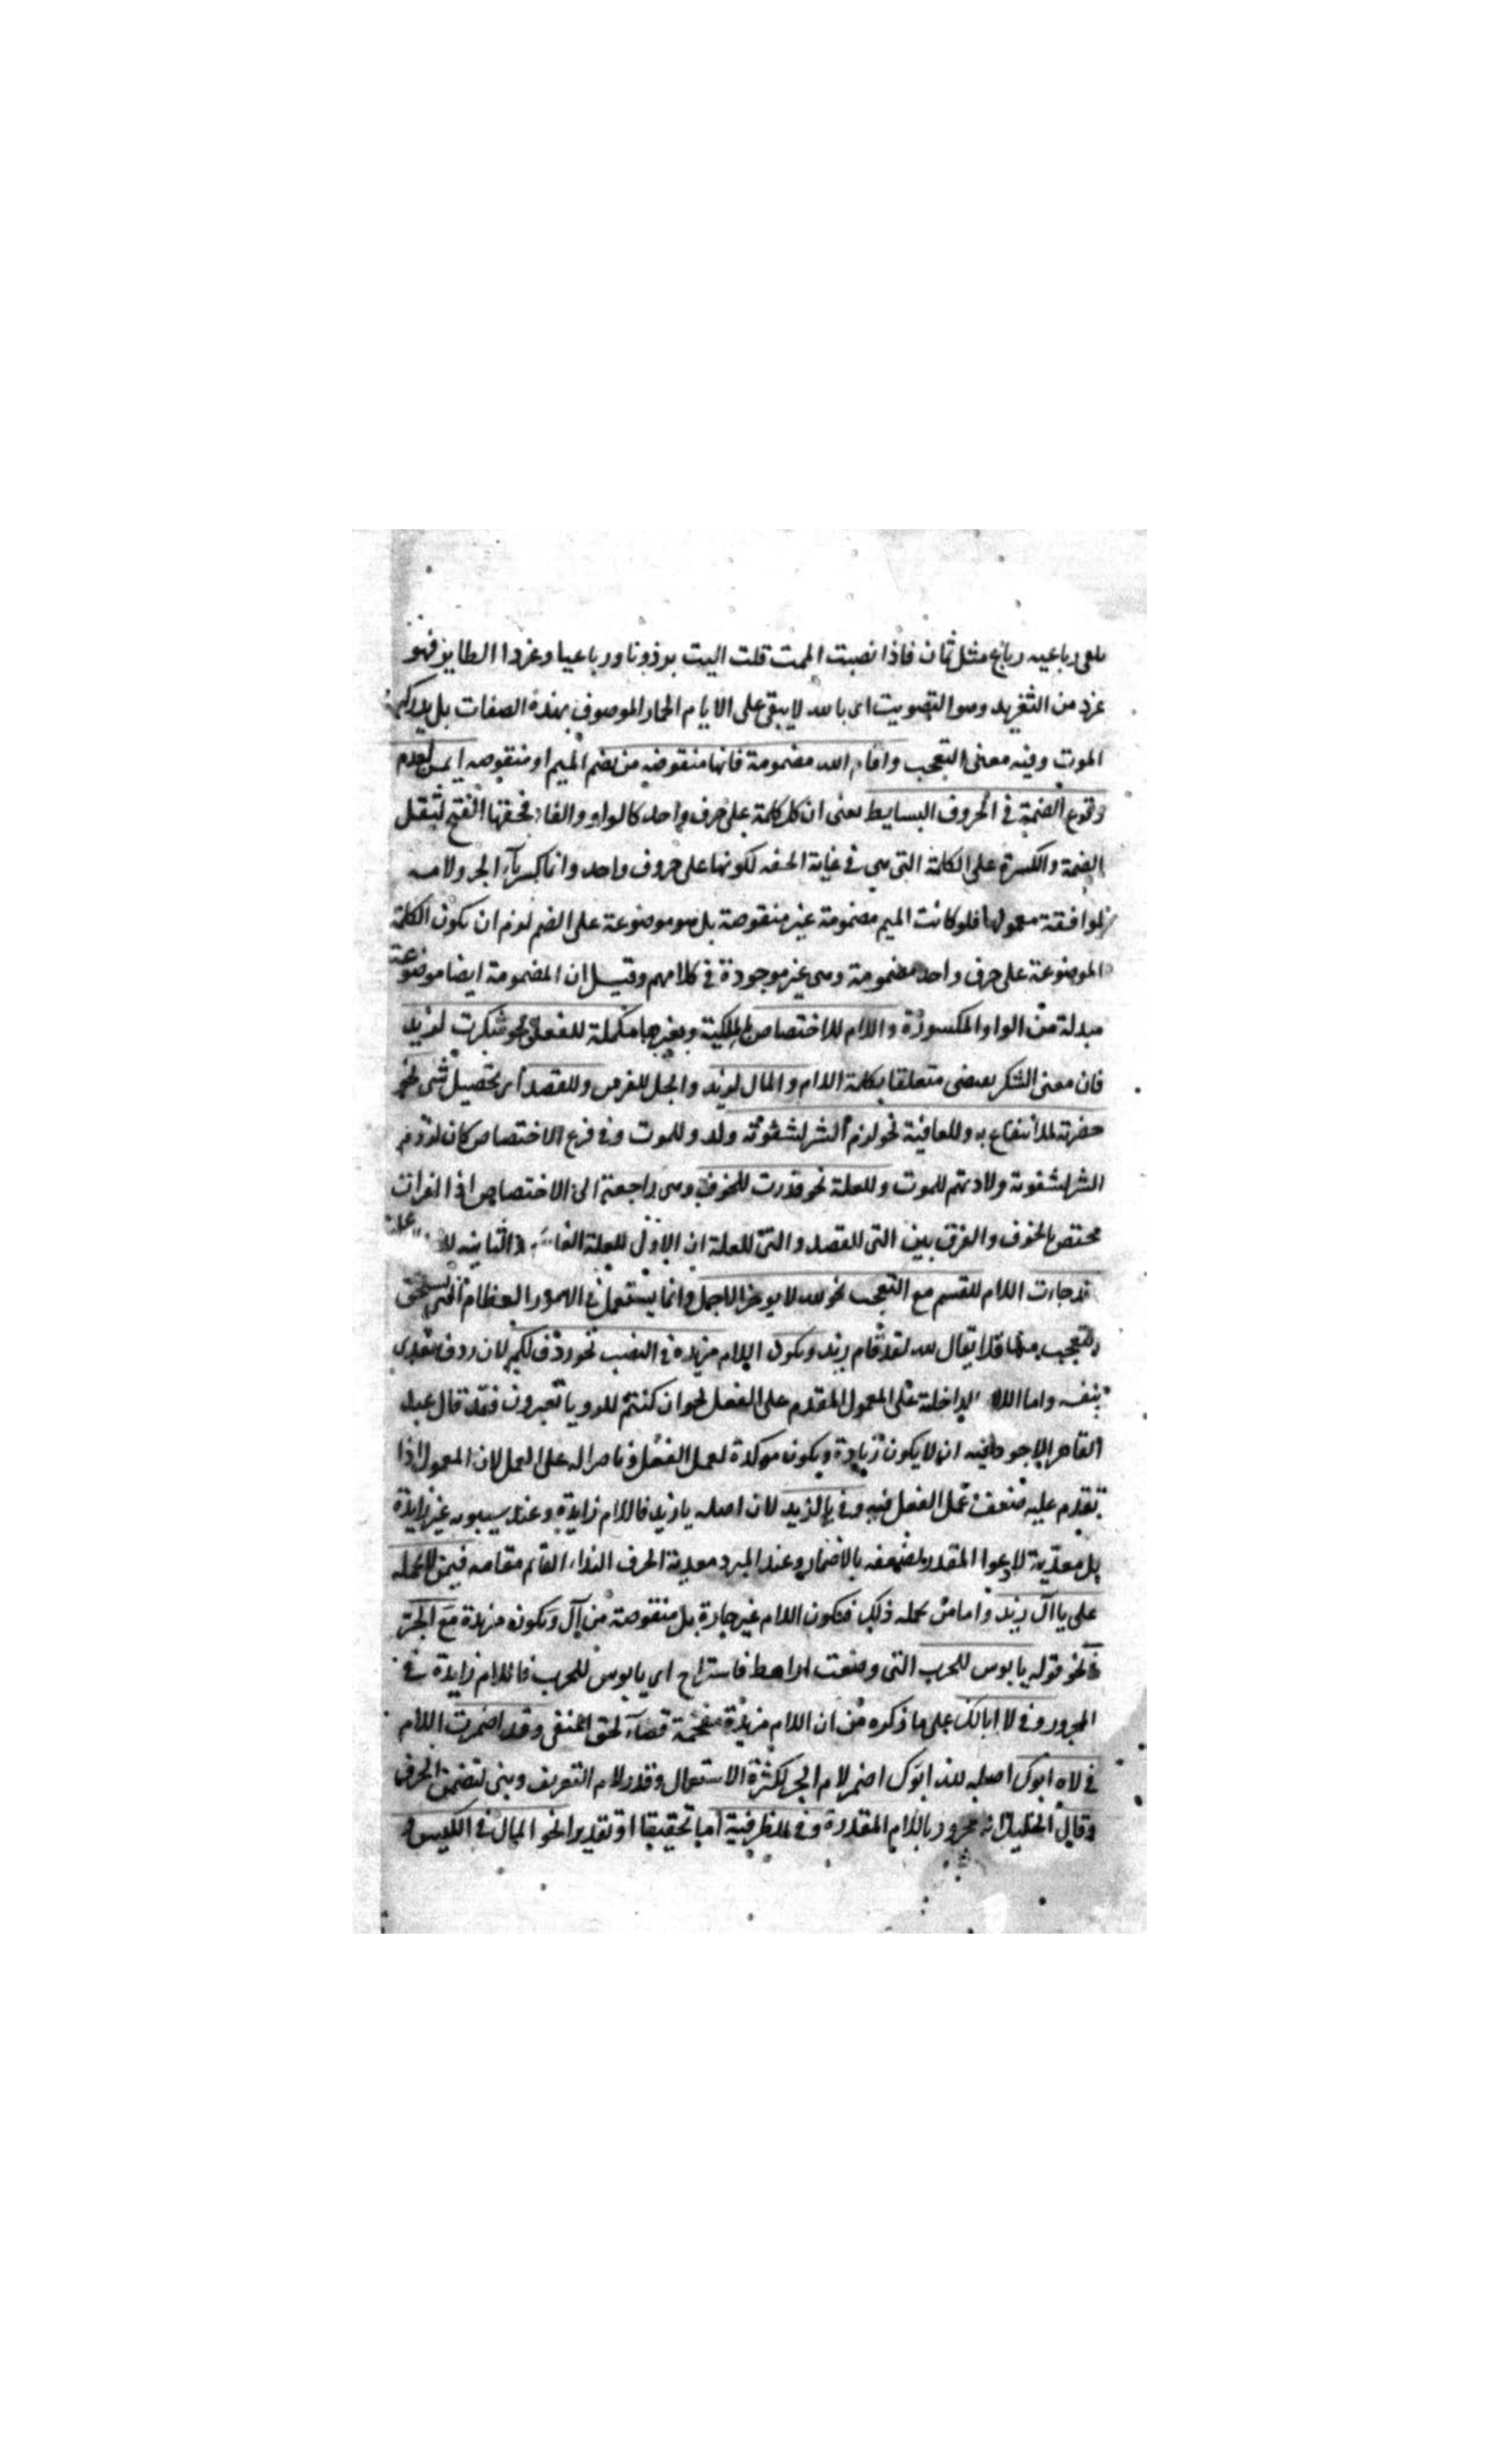 يلقى رباعيه رباع مثل ثمان فاذا نصبت اتممت قلت اليت برذونا ورباعيا وغردا الطاير فهو
غرد من التغريد وهو التصويت اى بالله لا يبقى على الايام الحمار الموصوف بهذه الصفات بل يدركه
الموت وفيه معنى التعجب واما م الله مضمومة فانها منقوضه من بضم الميم او منقوصه ايمن لعدم
وقوع الضمة فى الحروف البسايط يعنى ان كل كلمة على حرف واحد كالواو والفاء فحقها الفتح لثقل
الضمة والكسرة على الكلمة التى هى فى غاية الخفه لكونها على حروف واحد وانما كسر باء الجر ولامه
لموافقة معمولها فلو كانت الميم مضمومة غير منقوصة بل هو موضوعة على الضم لزم ان يكون الكلمة
الموضوعة على حرف واحد مضمومة وهى غير موجودة فى كلامهم وقيل ان المضمومة ايضا موضوعة
مبدلة من الواو المكسورة واللام للاختصاص بالملكية وبغيرها مكملة للفعل نحو شكرت لزيد
فان معنى الشكر يقتضى متعلقا بكلمة اللام والمال لزيد والجل للفرس وللقصد اى تحصيل شى نحو
حضرت للانتفاع به وللعاقبة نحو لزم الشر لشقوته ولد وللموت وفى فرع الاختصاص كان لزوم
الشر لشقوته ولادتهم للموت وللعلة نحو قدرت للخوف وهى راجعة الى الاختصاص اذ الفرات
مختص بالخوف والفرق بين التى للقصد والتى للعلة ان الاول للعلة والثانيه
قد جاءت اللام للقسم مع التعجب نحو لله لا يوخر الاجل وانما يستعمل فى الامور العظام التى يستحق
التعجب منها فلا يقال لله لقد قام زيد ويكون اللام مزيدة فى النصب نحو ردف لكم لان ردف يتعدى
بنفسه واما اللام الداخلة على المعمول المقدم على الفعل نحو ان كنتم للرويا تعبرون فقد قال عبد
القاهر الاجود فيه ان لا يكون زيادة ويكون موكدة لعمل الفعل وناصرا له على العمل لان المعمول اذا
تقدم عليه ضعف عمل الفعل فيه وفى يا لزيد لان اصله يا زيد فاللام زايدة وعند سيبويه غير زايدة
بل معدية لادعوا المقدر لضعفه بالاضمار وعند المبرد معدية لحرف النداء القائم مقامه فيمن لا يحمله
على يا آل زيد واما من يحمله ذلك فتكون اللام غير جارة بل منقوصة من آل وتكون مزيدة مع الجر
نحو قوله يا بوس للحرب التى وضعت اراهط فاستراح اى يا بوس للحرب فاللام زايدة فى
المجرور وفى لا ابالك على ما ذكره من ان اللام مزيدة مقحمة قضاء لحق المنفى وقد اضمرت اللام
فى لاه ابوك اصله لله ابوك اضمر لام الجر لكثرة الاستعمال وقدر لام التعريف وبنى لتضمن الحرف
وقال الخليل انه مجرور باللام المقدرة وفى للظرفية اما تحقيقا او تقديرا نحو المال فى الكيس و